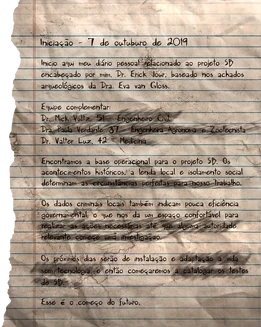 Iniciação - 7 de outuburo de 2019
Inicio aqui meu diário pessoal relacionado ao projeto SD
encabeçado por mim, Dr. Erick Jour, baseado nos achados
arqueológicos da Dra. Eva van Gloss.
Equipe complementar:
Dr. Mick Valtz, 51 - Engenheiro Civil
Dra. Paula Verdante, 37 - Engenheira Agrônoma e Zootecnista
Dr. Valter Luz, 42 - Medicina
Encontramos a base operacional para o projeto SD. Os
acontecimentos históricos, a lenda local e isolamento social
determinam as circunstâncias perfeitas para nosso trabalho.
Os dados criminais locais também indicam pouca eficiência
governamental, o que nos dá um espaço confortável para
realizar as ações necessárias até que alguma autoridade
relevante comece uma investigação.
Os próximos dias serão de instalação e adaptação à vida
sem tecnologia, e então começaremos a catalogar os testes
de SD.
Esse é o começo do futuro.